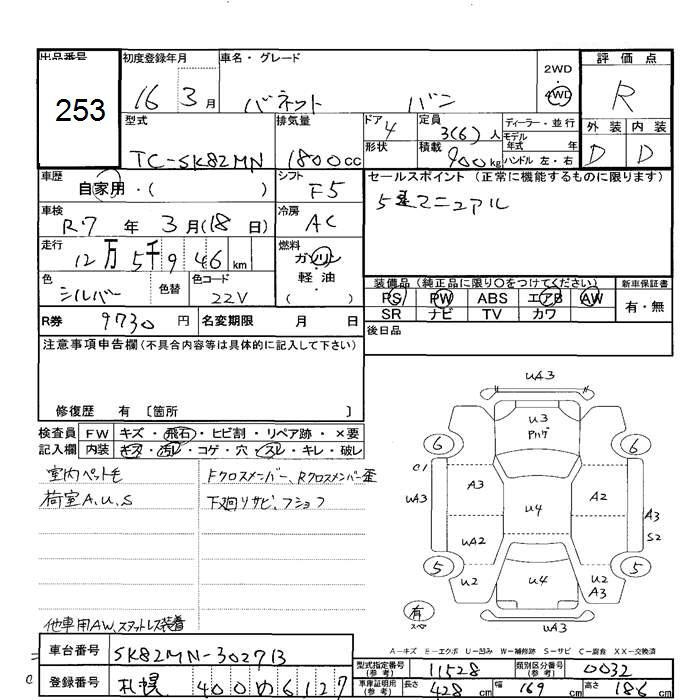 出品番号 初度登録年月 車名・グレード 評価点
253
16 3月 バネット バン
2WD
4WD
R
外装 内装
D D
型式 排気量 ドア 定員 ディーラー・並行
TC-SK82MN 1800cc 4 3(6)人
形状 積載 900kg モデル年式 年式
ハンドル 左・右
車歴 シフト セールスポイント(正常に機能するものに限ります)
自家用・( ) F5 5速マニュアル
車検 冷房
R7年3月(18日) AC
走行 燃料
12万5千946km ガソリン
軽・油
( )
色 色替 色コード
シルバー 22V
装備品(純正品に限り○をつけてください) 新車保証書
PS PW ABS エアB AW 有・無
SR ナビ TV カワ
R券 9730円 名変期限 月 日 後日品
注意事項申告欄(不具合内容等は具体的に記入して下さい)
修復歴 有 〔箇所 〕
検査員 FW キズ・飛石・ヒビ割・リペア跡・×要
記入欄 内装 キズ・汚レ・コゲ・穴・スレ・キレ・破レ
室内ペット毛 Fクロスメンバー、Rクロスメンバー歪
荷室A.U.S 下廻りサビ、フショク
他車用AW、スタットレス装着
UA3
U3
Pハゲ
6 6
C1
A3 A2
UA3 U4 A3
S2
UA2
5 5
U2 U4 U2
A3
有
スペア
UA3
A-キズ E-エクボ U-凹み W-補修跡 S-サビ C-腐食 XX-交換済
車台番号 SK82MN-302713
登録番号 札幌 400 め 6127
型式指定番号(参考) 11528 類別区分番号(参考) 0032
車庫証明用(参考) 長さ 428cm 幅 169cm 高さ 186cm